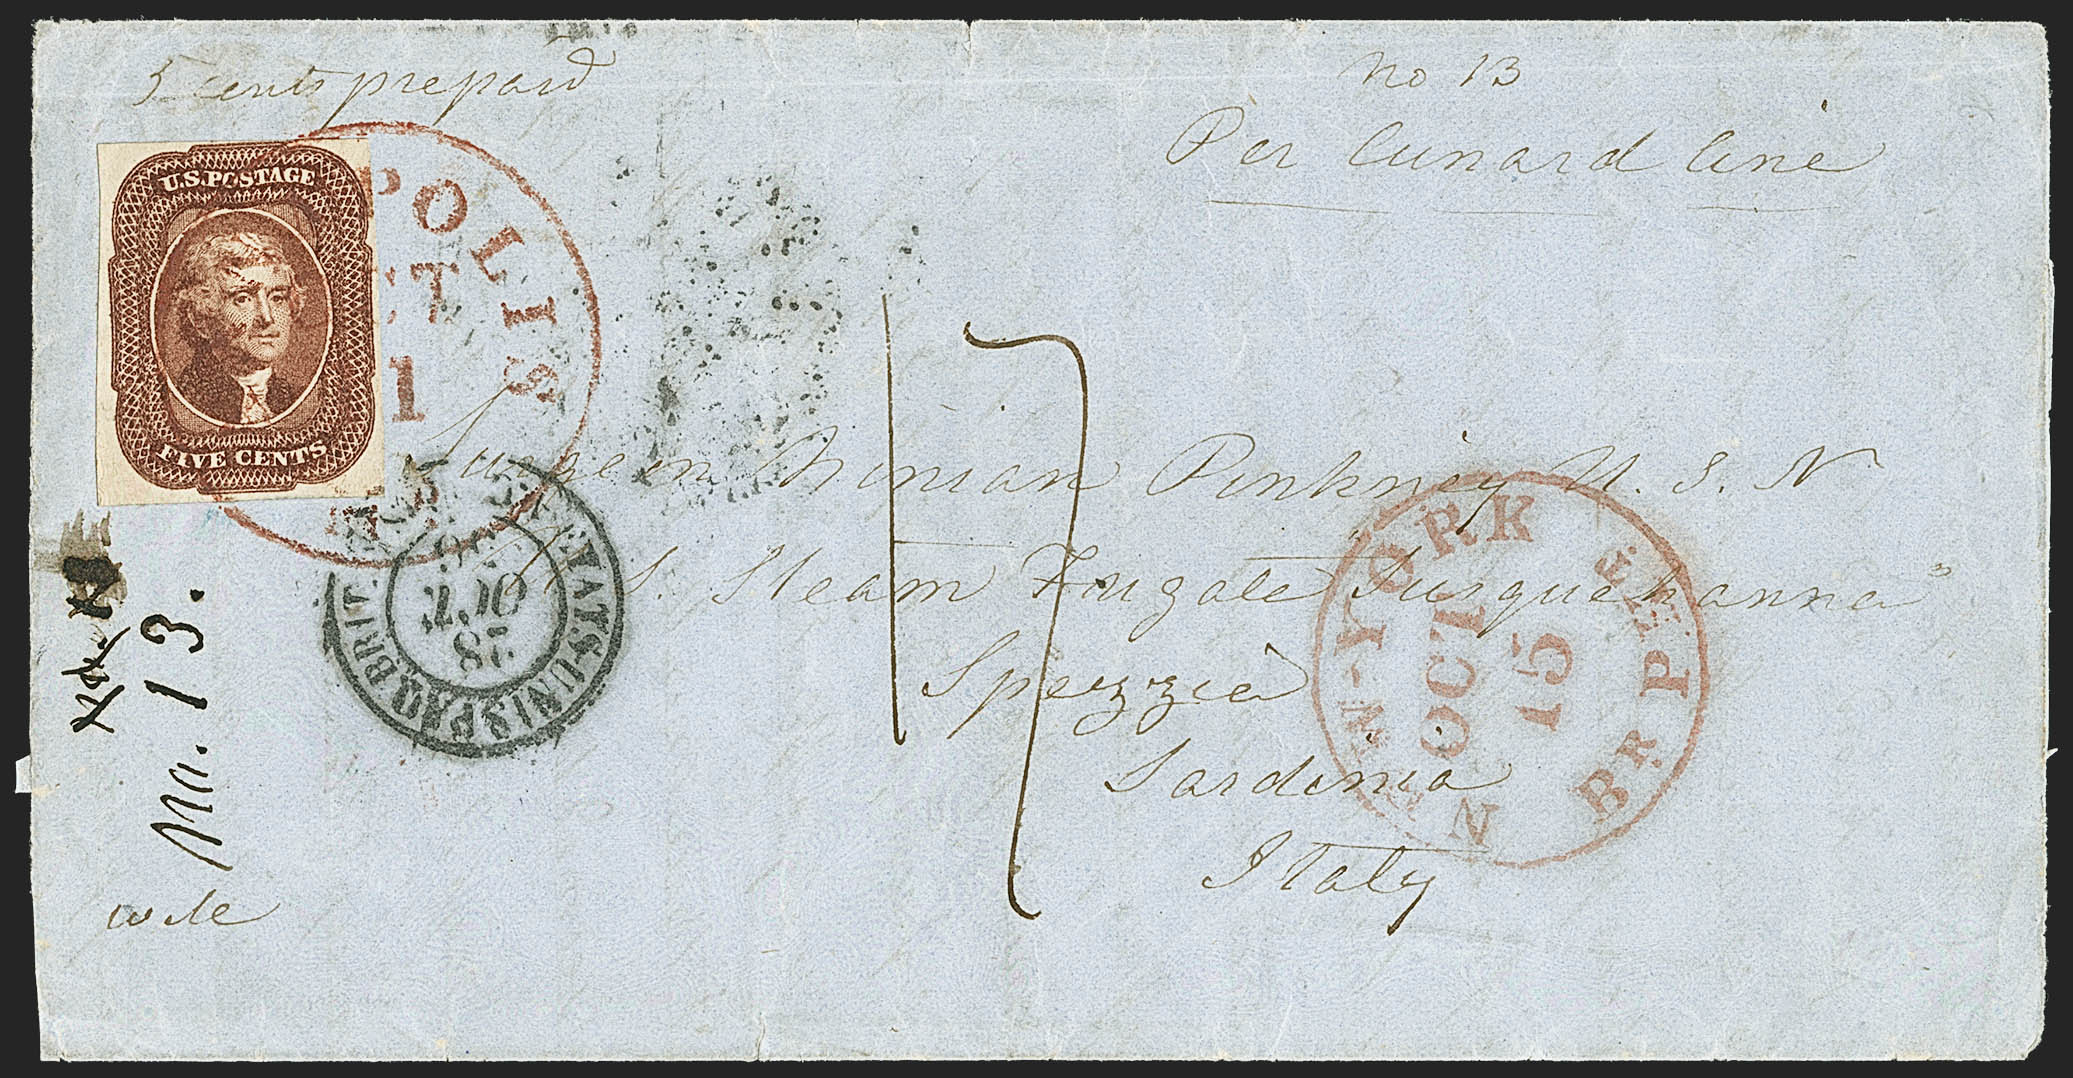 5 cents prepaid
No 13
Per Cunard line
U.S. POSTAGE
FIVE CENTS
POLIS
CT
1
MD
17
Surgeon Ninian Pinkney U. S. N
U. S. Steam Frigate Susquehanna"
Spezzia
Sardinia
Italy
NEW-YORK BR PKT
OCT
15
ETATS-UNIS PAQ. BRIT.
28
OCT.
56
No. 13.